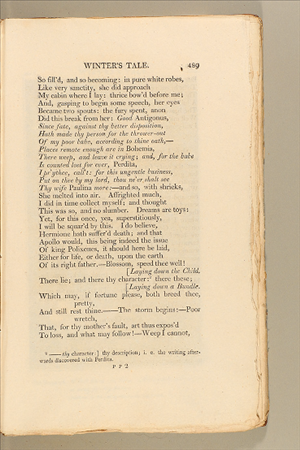 WINTER'S TALE. 489
So fill'd, and so becoming: in pure white robes,
Like very sanctity, she did approach
My cabin where I lay: thrice bow'd before me;
And, gasping to begin some speech, her eyes
Became two spouts: the fury spent, anon
Did this break from her: Good Antigonus,
Since fate, against thy better disposition,
Hath made thy person for the thrower-out
Of my poor babe, according to thine oath,—
Places remote enough are in Bohemia,
There weep, and leave it crying; and, for the babe
Is counted lost for ever, Perdita,
I pr'ythee, call't: for this ungentle business,
Put on thee by my lord, thou ne'er shalt see
Thy wife Paulina more:—and so, with shrieks,
She melted into air. Affrighted much,
I did in time collect myself; and thought
This was so, and no slumber. Dreams are toys:
Yet, for this once, yea, superstitiously,
I will be squar'd by this. I do believe,
Hermione hath suffer'd death; and that
Apollo would, this being indeed the issue
Of king Polixenes, it should here be laid,
Either for life, or death, upon the earth
Of its right father.—Blossom, speed thee well!
[Laying down the Child.
There lie; and there thy character: there these;
[Laying down a Bundle.
Which may, if fortune please, both breed thee,
pretty,
And still rest thine.——The storm begins:—Poor
wretch,
That, for thy mother's fault, art thus expos'd
To loss, and what may follow!—Weep I cannot,
—— thy character:] thy description; i. e. the writing after-
wards discovered with Perdita.
P P 2